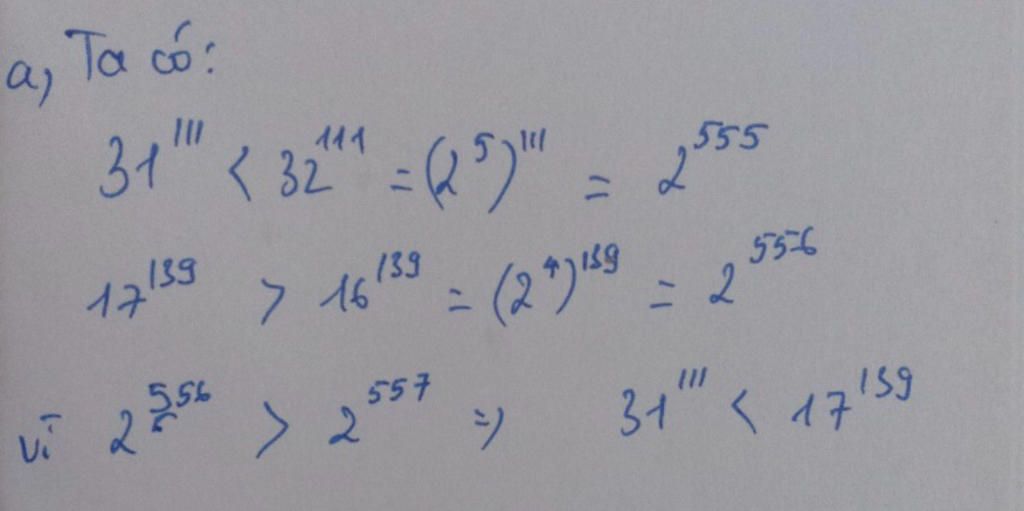 a, Ta có:
31^111 < 32^111 = (2^5)^111 = 2^555
17^139 > 16^139 = (2^4)^139 = 2^556
vì 2^556 > 2^557 => 31^111 < 17^139